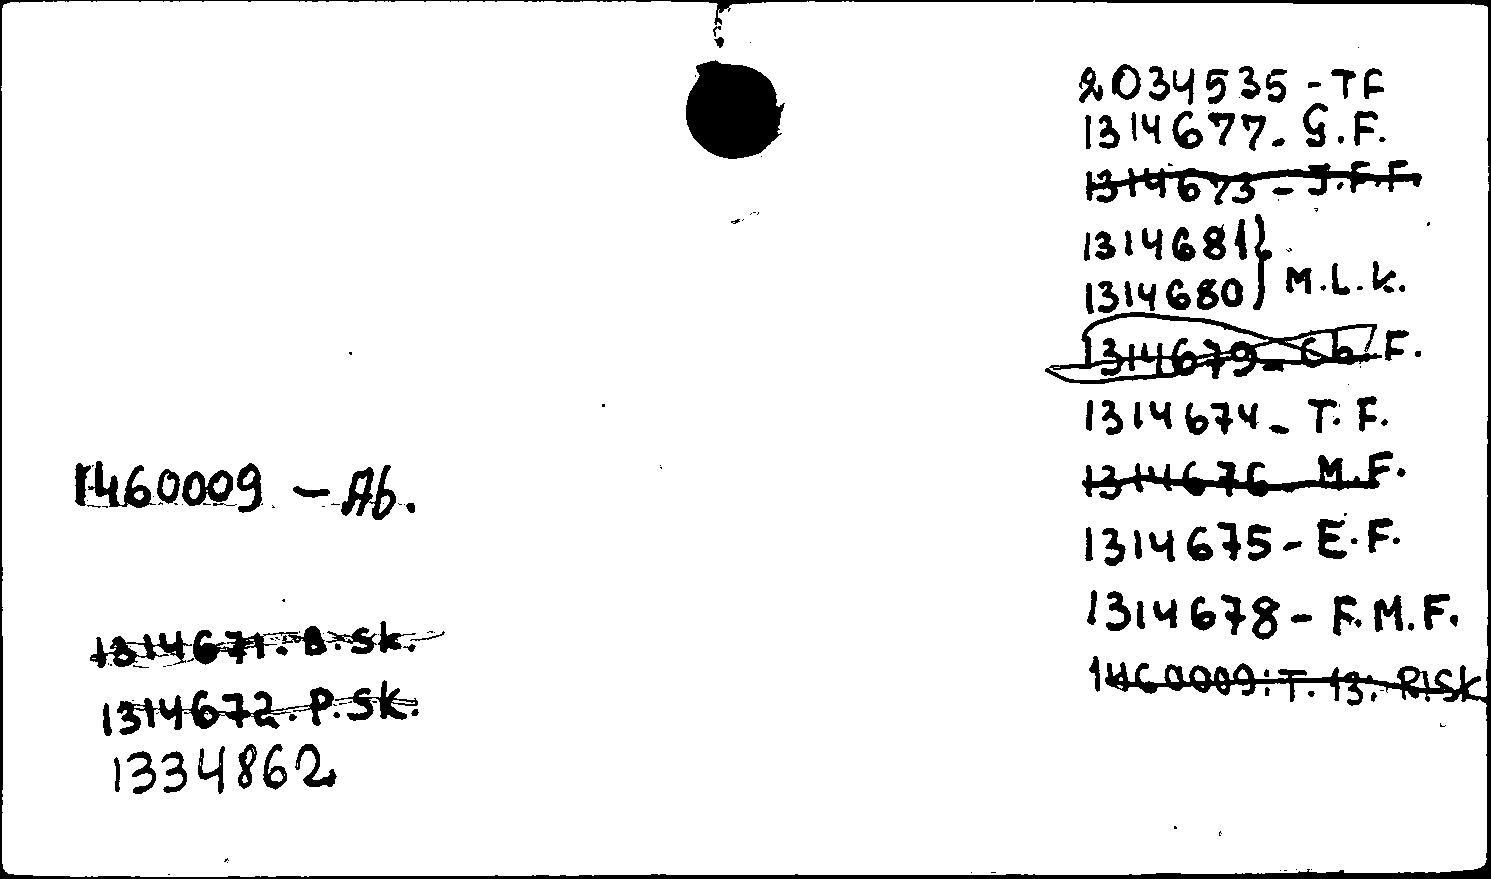 2034535 - TF
1314677 - G.F.
1314673 - J.F.F.
1314681 }
1314680 } M.L.K.
1314679 - Ch. F.
1314674 - T. F.
1314676 - M.F.
1314675 - E.F.
1314678 - F.M.F.
1460009: T. 13: RISK
1460009 - Ab.
1314671. B. Sk.
1314672. P. Sk.
1334862